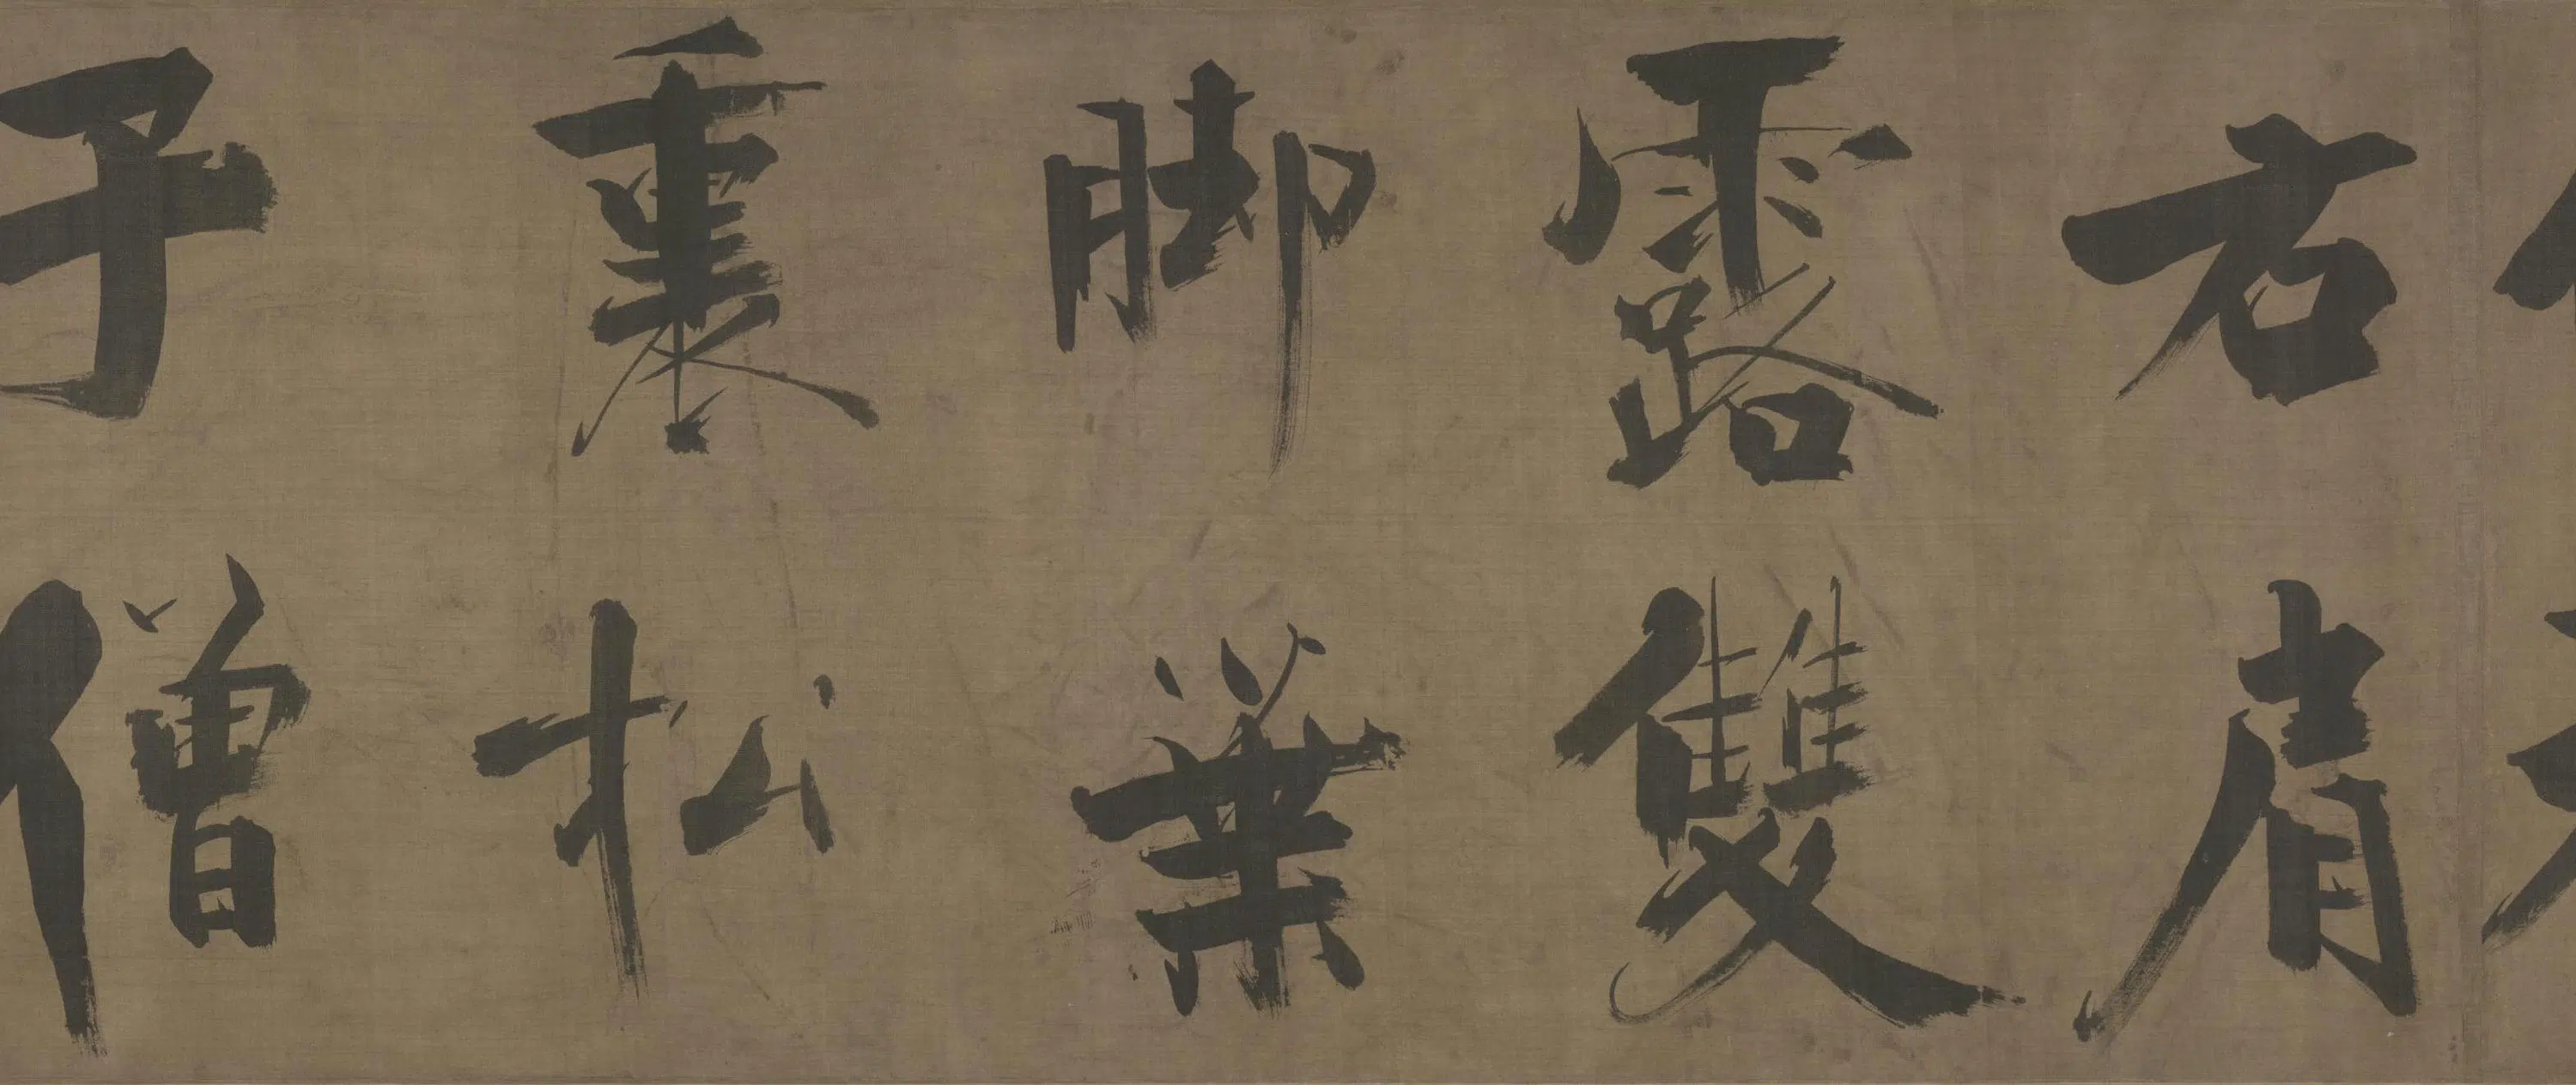 右肩
露雙
脚葉
裏松
子僧